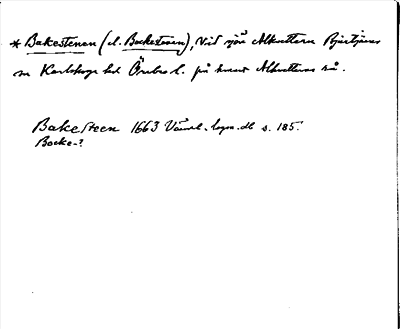 * Bakestenen (el. Bockesteen), Vid sjön Alkvettern Bjurtjärns
sn Karlskoga hd Örebro l. på kartan Alkvetterns rå.
Bakesteen 1663 Värml. lagm. db s. 185.
Bocke-?